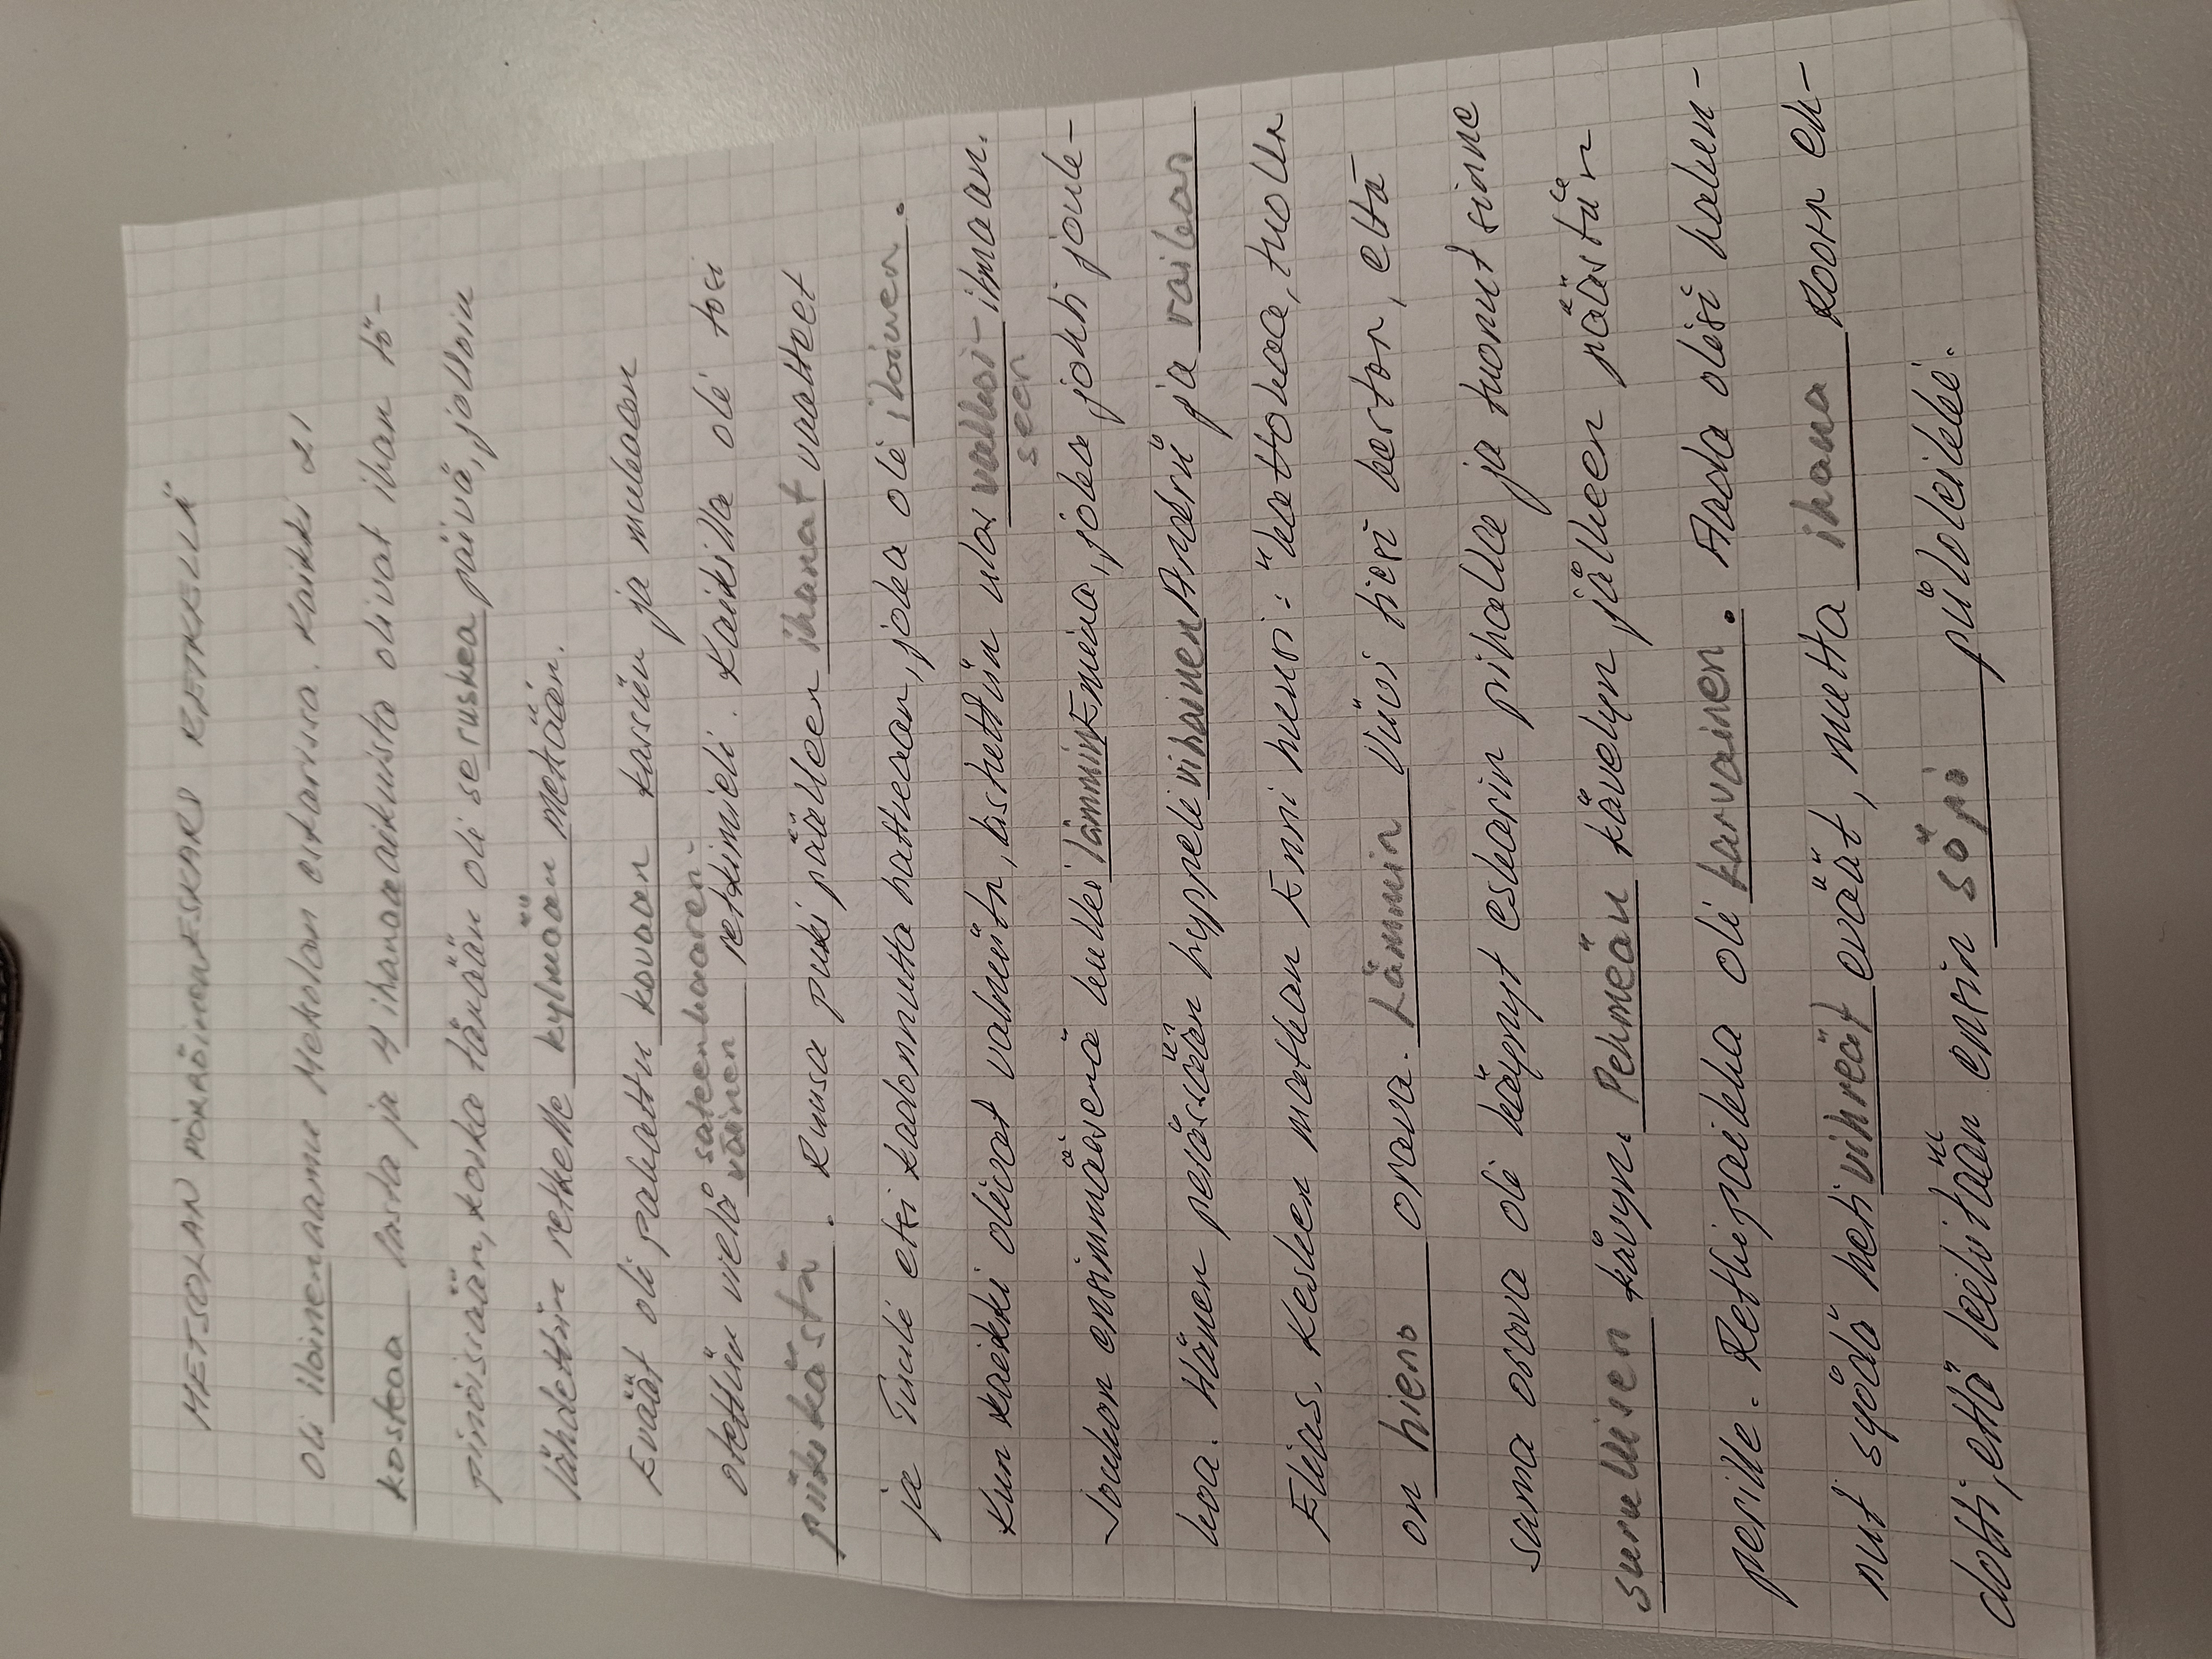 METSOLAN PÖKKÖINEN ESKARI RETKELLÄ
Oli iloinen aamu Metsolan eskarissa. Kaikki 21
kosteaa lasta ja 4 ihanaa aikuista olivat ihan tö-
pinöissään, koska tänään oli se ruskea päivä, jolloin
lähdettiin retkelle kylmään metsään.
Eväät oli pakattu kovaan kassiin ja mukaan
otettiin vielä sateenkaaren
värinen retkimieli. Kaikilla oli tosi
piiiikikästä. Ruusa puki päälleen ihanat vaatteet
ja Tuuli etsi kadonnutta hattuaan, joka oli iloinen.
Kun kaikki olivat valmiita, lähdettiin ulos valkoi-
seen ilmaan.
Joukon ensimmäisenä kulki lämmin Emilia, joka johti jouk-
koa. Hänen perässään hyppeli vihainen Andrii ja vaikean
Elias. Kesken matkan Enni huusi: "kattokaa, tuolla
on hieno orava. Lämmin Viivi tiesi kertoa, että
sama orava oli käynyt eskarin pihalla ja tuonut sinne
surullisen kävyn. Pehmeän kävelyn jälkeen päästiin
perille. Retkipaikka oli karvainen. Aada olisi halun-
nut syödä heti vihreät eväät, mutta ihana Roni eh-
dotti, että leikitään ensin söpö piiloleikki.